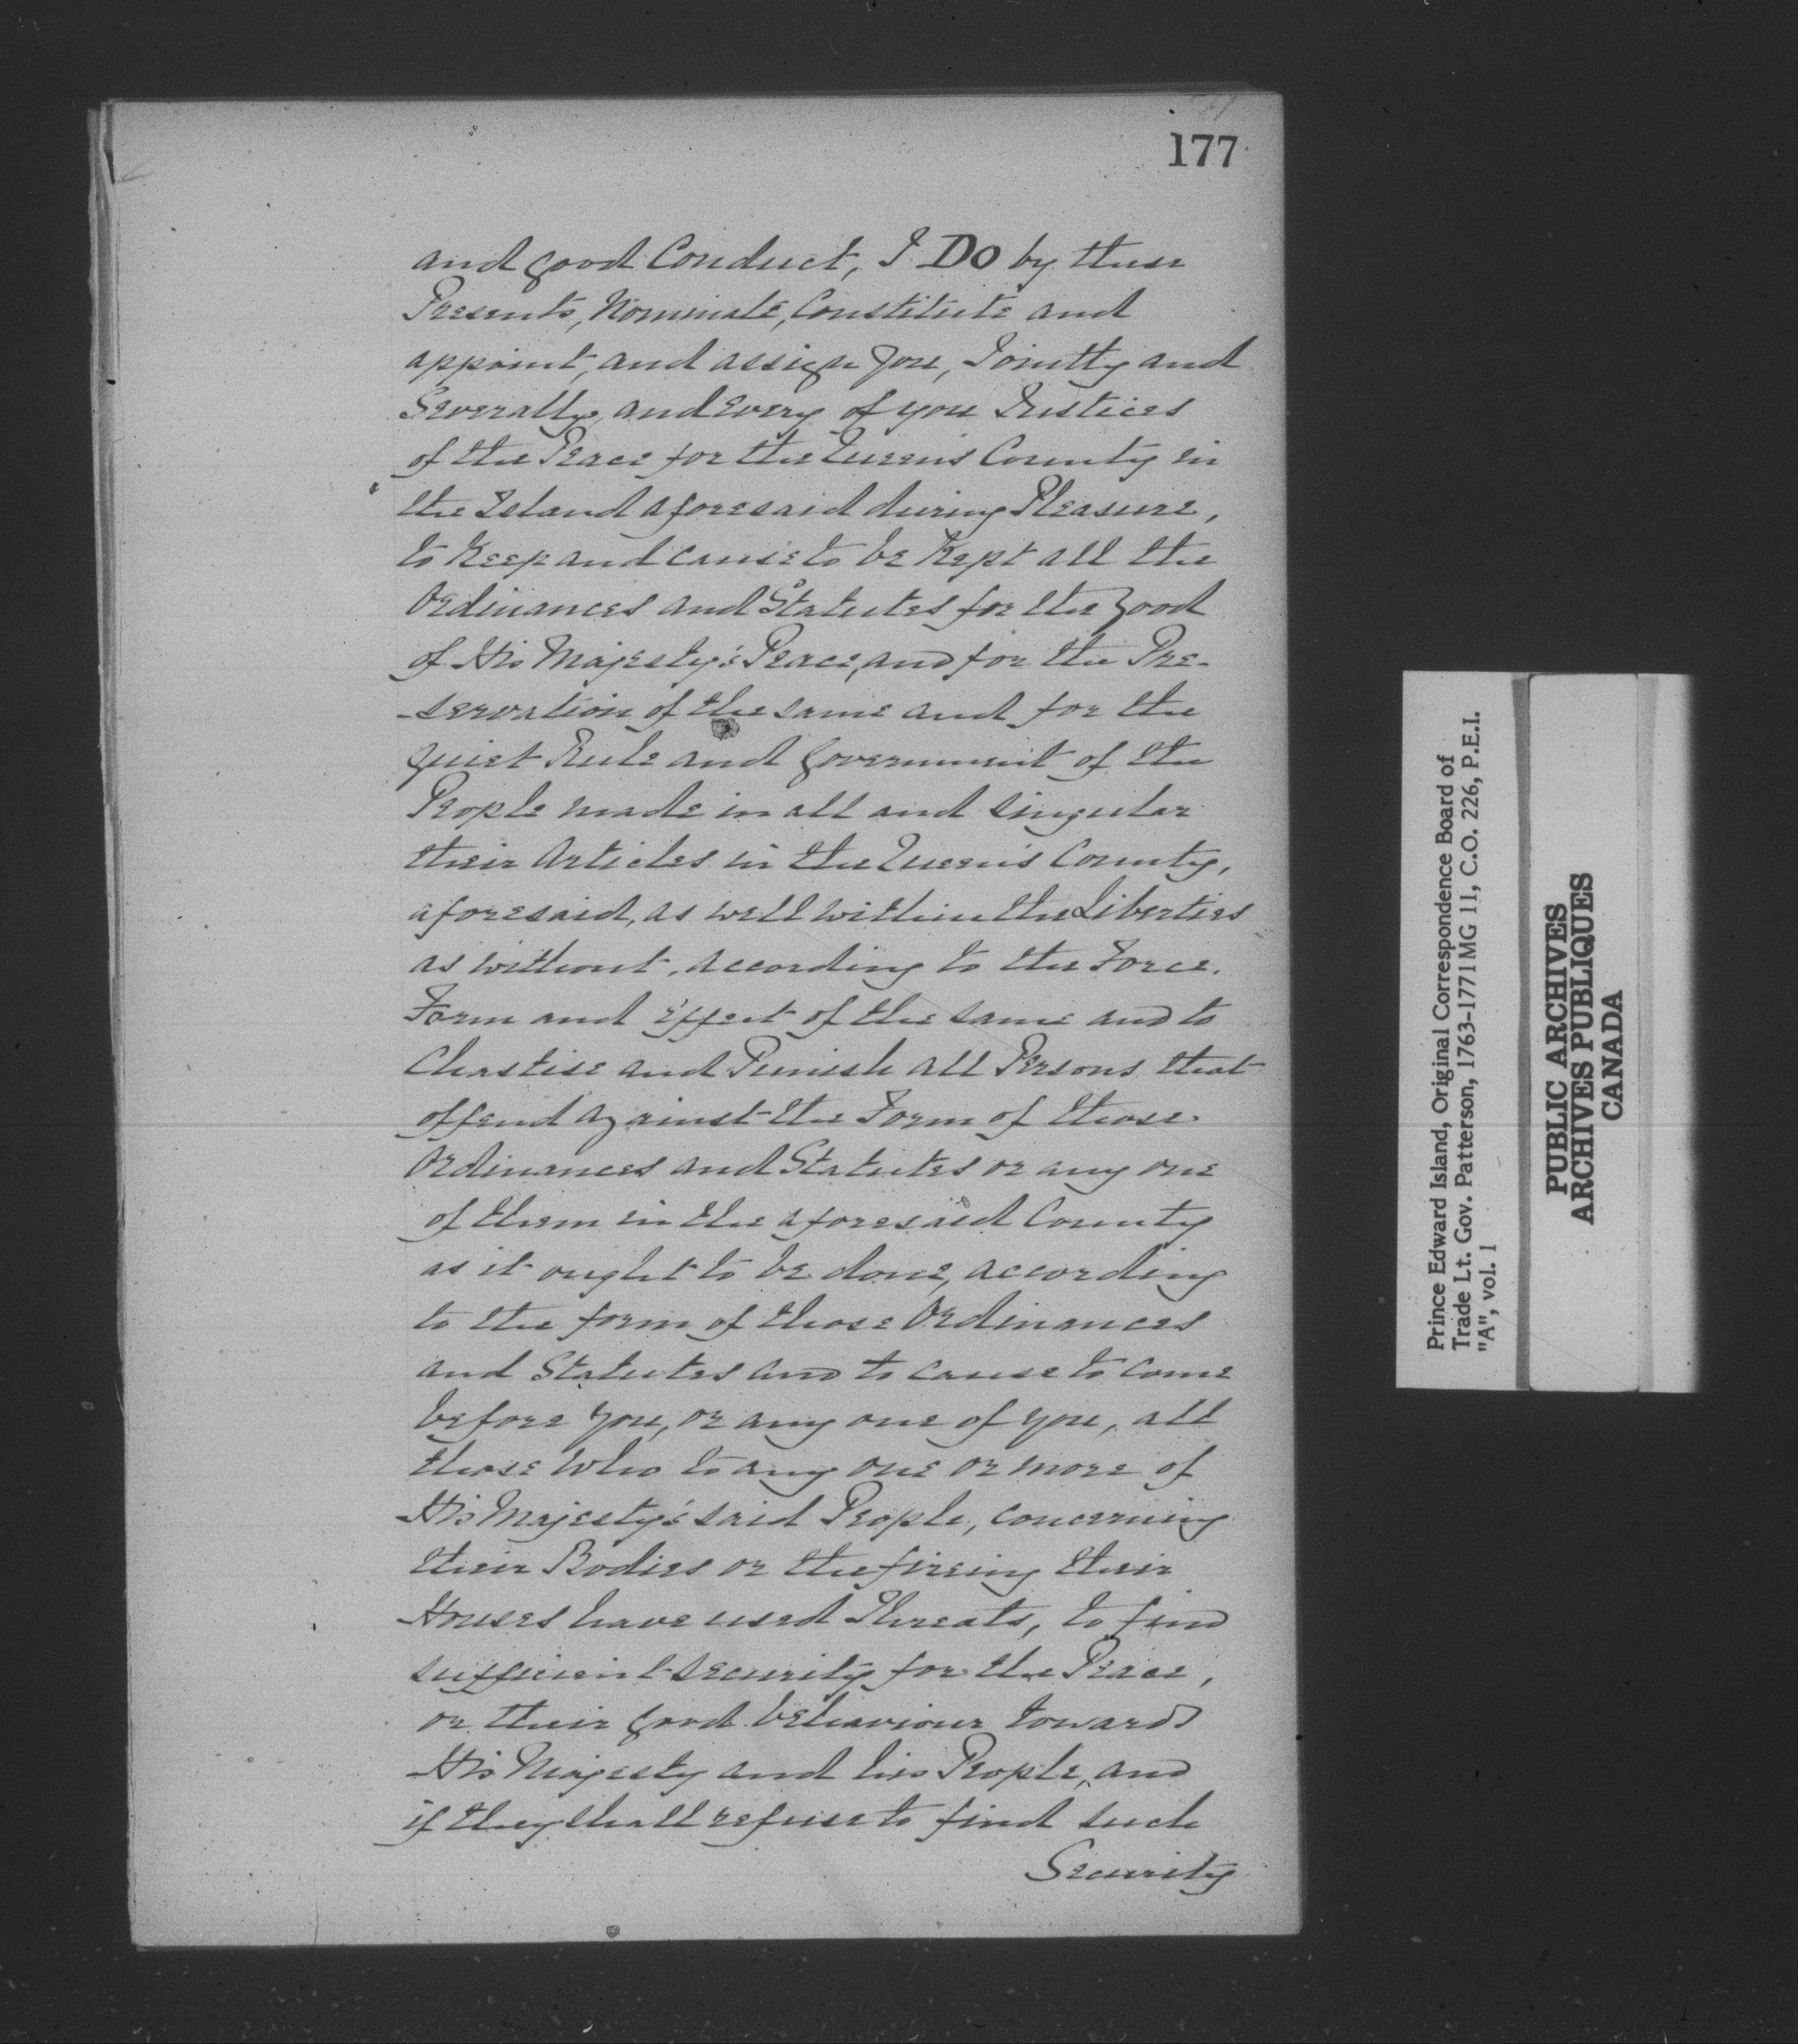 177
and good Conduct, I DO by these
Presents, Nominate, Constitute and
appoint, and assign you, Jointly and
Severally, and Every of you Justices
of the Peace for the Queen's County in
the Island aforesaid during Pleasure,
to keep and cause to be kept all the
Ordinances and Statutes for the good
of His Majesty's Peace, and for the Pre-
-servation of the same and for the
quiet Rule and Government of the
People made in all and singular
their Articles in the Queen's County,
aforesaid, as well within the Liberties
as without, according to the Force.
Form and Effect of the same and to
Chastise and Punish all Persons that
offend against the Form of those
Ordinances and Statutes or any one
of them in the aforesaid County
as it ought to be done, according
to the form of those Ordinances
and Statutes and to cause to come
before you, or any one of you, all
those who to any one or more of
His Majesty's said People, concerning
their Bodies or the fireing their
Houses have used Threats, to find
sufficient security for the Peace,
or their good behaviour towards
His Majesty and his People, and
if they shall refuse to find such
Security
Prince Edward Island, Original Correspondence Board of
Trade Lt. Gov. Patterson, 1763-1771 MG 11, C.O. 226, P.E.I.
"A", vol. 1
PUBLIC ARCHIVES
ARCHIVES PUBLIQUES
CANADA